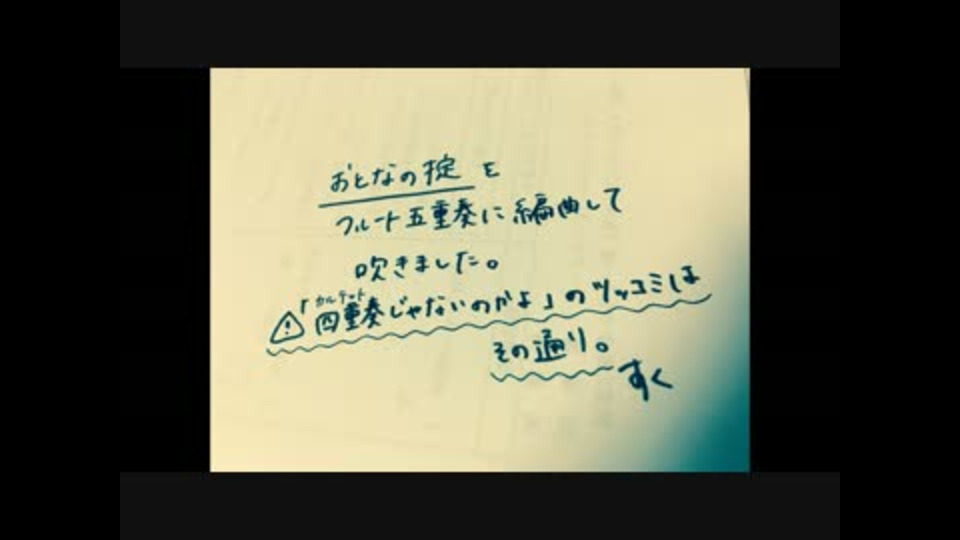 おとなの掟を
フルート五重奏に編曲して
吹きました。
カルテット
⚠「四重奏じゃないのかよ」のツッコミは
その通り。
すく